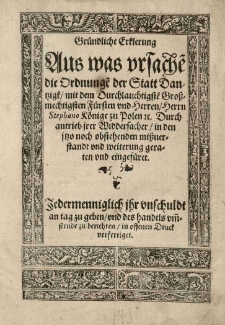 Gründliche Erklerung
Aus was vrsachẽ
die Ordnungẽ der Statt Dan-
tzigk/ mit dem Durchlauchtigstẽ Groß-
mechtigsten Fürsten vnd Herren/ Herrn
Stephano Könige zu Polen ꝛc. Durch
antrieb jrer Widdersacher/ in den
jtzo noch obstehenden mißuer-
standt vnd weiterung gera-
ten vnd eingefüret.
Jedermenniglich jhr vnschuldt
an tag zu geben/ vnd des handels vm̃-
stende zu berichten/ in offenen Druck
verfertiget.